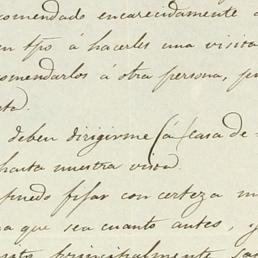 comendado encarecidamente a
en tpo á hacerles una visita
comendarlos á otra persona, p
ta.
deben dirigirme (á casa de
hasta nuestra vista.
puedo fijar con certeza m
a que sea cuanto antes, y
principalmente